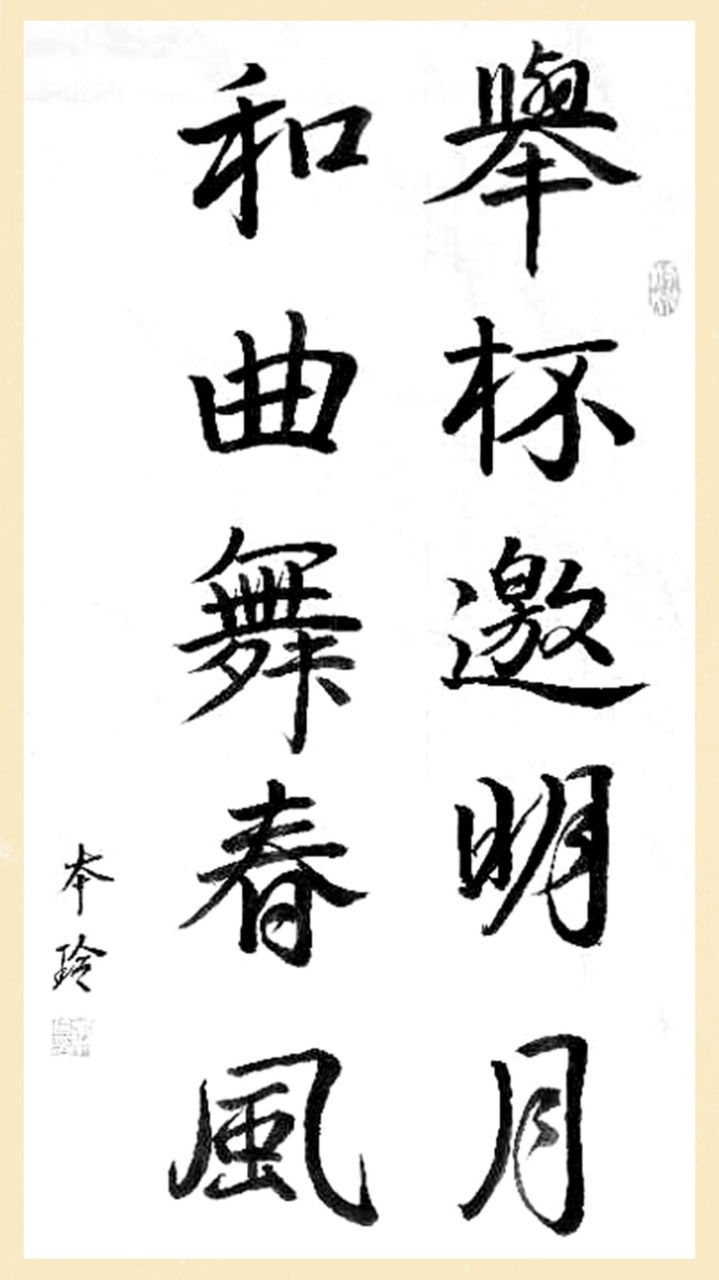 舉杯邀明月
和曲舞春風
本玲